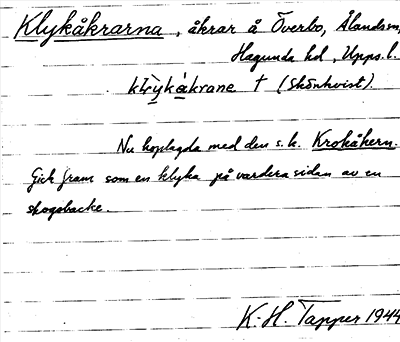 Klykåkrarna, åkrar å Överbo, Ålandssn,
Hagunda hd, Upps. l.
klrỳkákrane † (Skönkvist).
Nu hoplagda med den s. k. Krokåkern.
Gick fram som en klyka på vardera sidan av en
skogsbacke.
K.-H. Tapper 1944